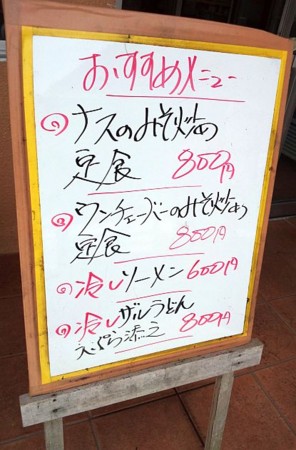 おすすめメニュー
ナスのみそ炒め
定食 800円
ワンチェーバーのみそ炒め
定食 800円
冷しソーメン 600円
冷しザルうどん
天ぷら添え 800円